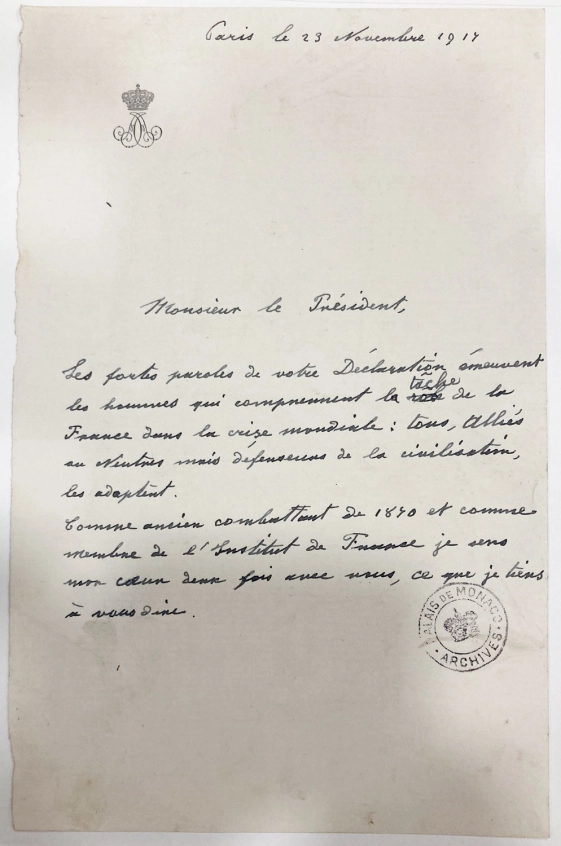 Paris le 23 Novembre 1917
Monsieur le Président,
Les fortes paroles de votre Déclaration émeuvent
les hommes qui comprennent la tâche de la
France dans la crize mondiale : tous, Alliés
ou Neutres mais défenseurs de la civilisation,
les adoptent.
Comme ancien combattant de 1870 et comme
membre de l'Institut de France je sens
mon cœur deux fois avec vous, ce que je tiens
à vous dire.
PALAIS DE MONACO
ARCHIVES